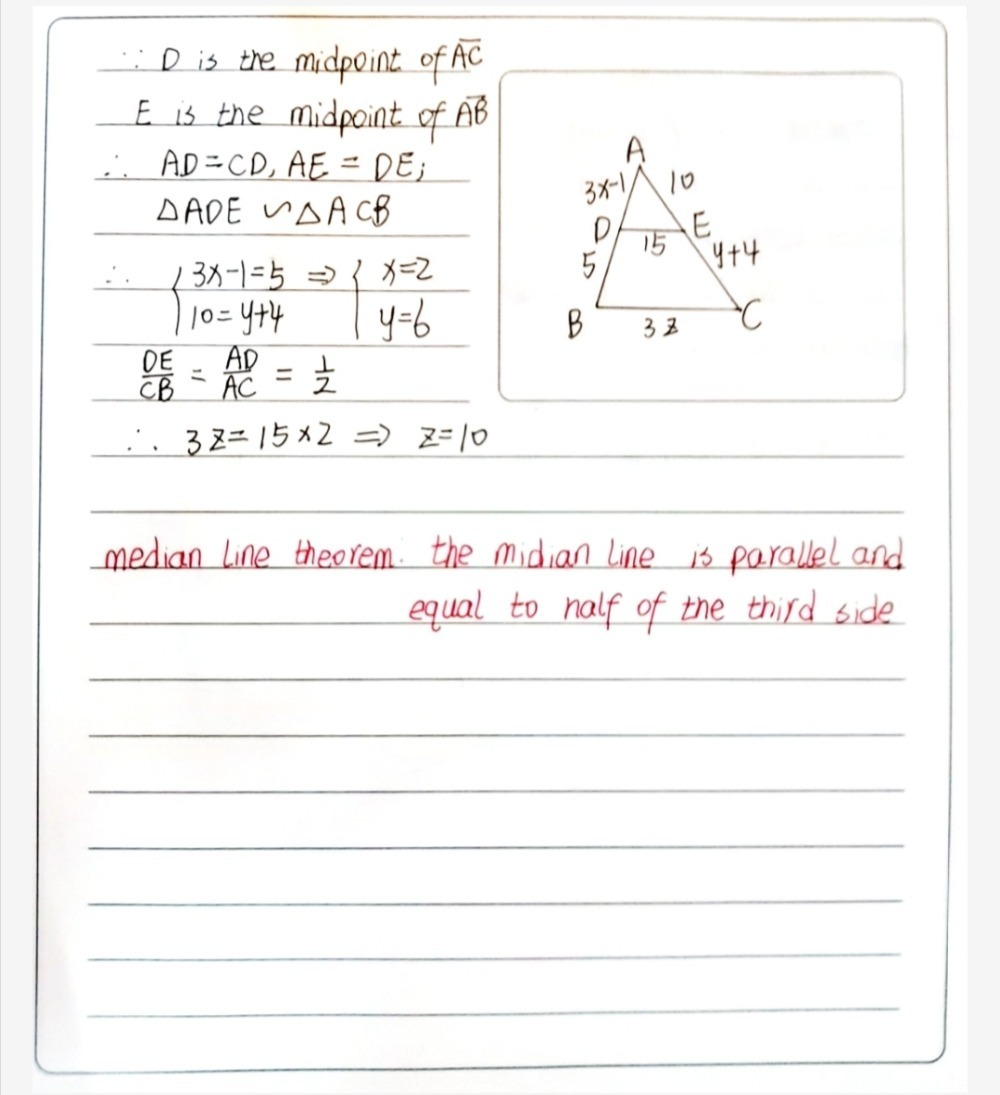 ∵ D is the midpoint of A̅C̅
E is the midpoint of A̅B̅
∴ AD=CD, AE = DE;
△ADE ∽ △ACB
∴ { 3x-1=5 ⇒ { x=2
10=y+4 y=6
DE/CB = AD/AC = 1/2
∴ 3z=15×2 ⇒ z=10
A
3x-1 10
D 15 E
5 y+4
B 3z C
median line theorem. the midian line is parallel and
equal to half of the third side